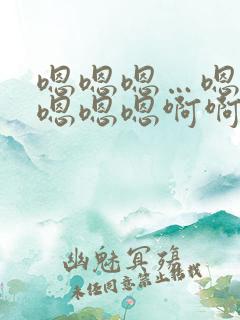 嗯嗯嗯…嗯
嗯嗯嗯啊啊
幽魅冥殇
未经同意禁止转载